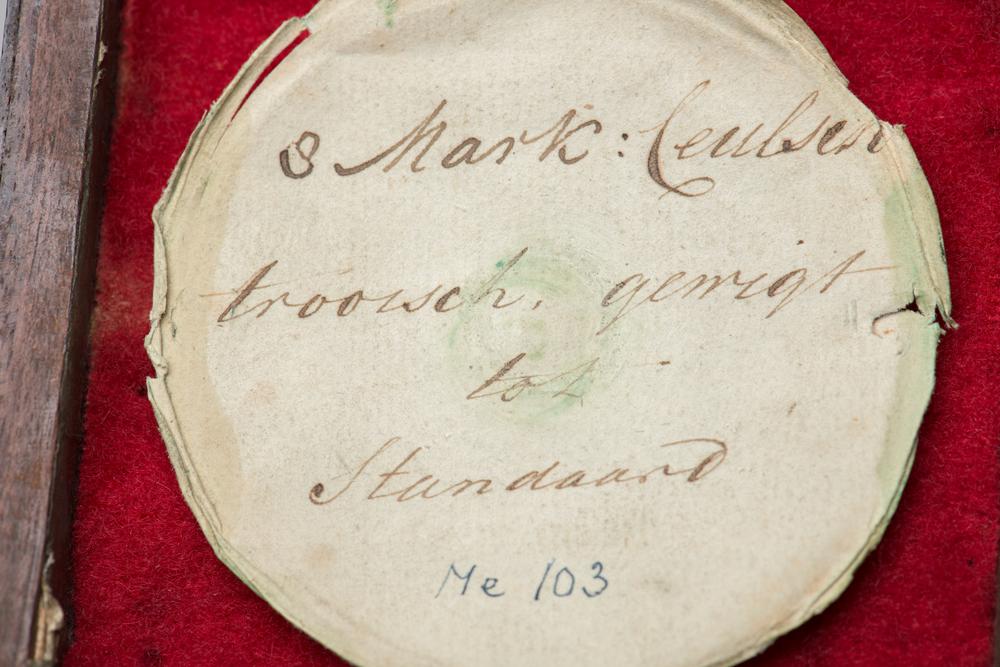 8 Mark: Ceulsen
trooisch. gewigt
tot
Standaard
Me 103